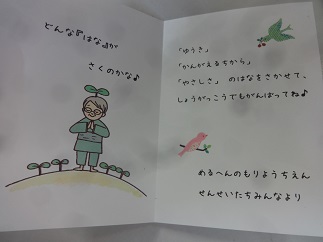 どんな『はな』が
さくのかな♪
「ゆうき」
「かんがえるちから」
「やさしさ」のはなをさかせて、
しょうがっこうでもがんばってね♪
めるへんのもりようちえん
せんせいたちみんなより